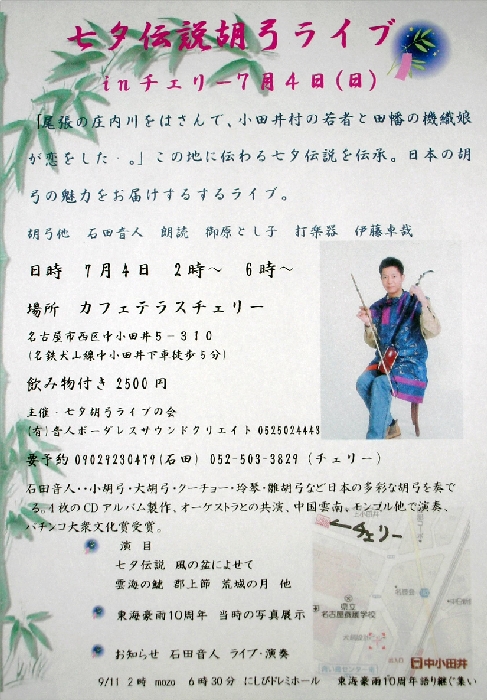 七夕伝説胡弓ライブ
inチェリー7月4日(日)
「尾張の庄内川をはさんで、小田井村の若者と田幡の機織娘
が恋をした・。」この地に伝わる七夕伝説を伝承。日本の胡
弓の魅力をお届けするするライブ。
胡弓他 石田音人 朗読 御原とし子 打楽器 伊藤卓哉
日時 7月4日 2時〜 6時〜
場所 カフェテラスチェリー
名古屋市西区中小田井5－310
(名鉄犬山線中小田井下車徒歩5分)
飲み物付き 2500円
主催・七夕胡弓ライブの会
(有)音人ボーダレスサウンドクリエイト 0525024443
要予約 09029230479(石田) 052-503-3829 (チェリー)
石田音人・・小胡弓・大胡弓・クーチョー・玲琴・雛胡弓など日本の多彩な胡弓を奏で
る。4枚のCDアルバム製作、オーケストラとの共演、中国雲南、モンゴル他で演奏、
パチンコ大衆文化賞受賞。
チェリー
演目
七夕伝説 風の盆によせて
雲海の鯱 郡上節 荒城の月 他
県立
名古屋養護学校
東海豪雨10周年 当時の写真展示
中小田井
お知らせ 石田音人 ライブ・演奏
9/11 2時 mozo 6時30分 にしびドレミホール 東海豪雨10周年語り継ぐ集い